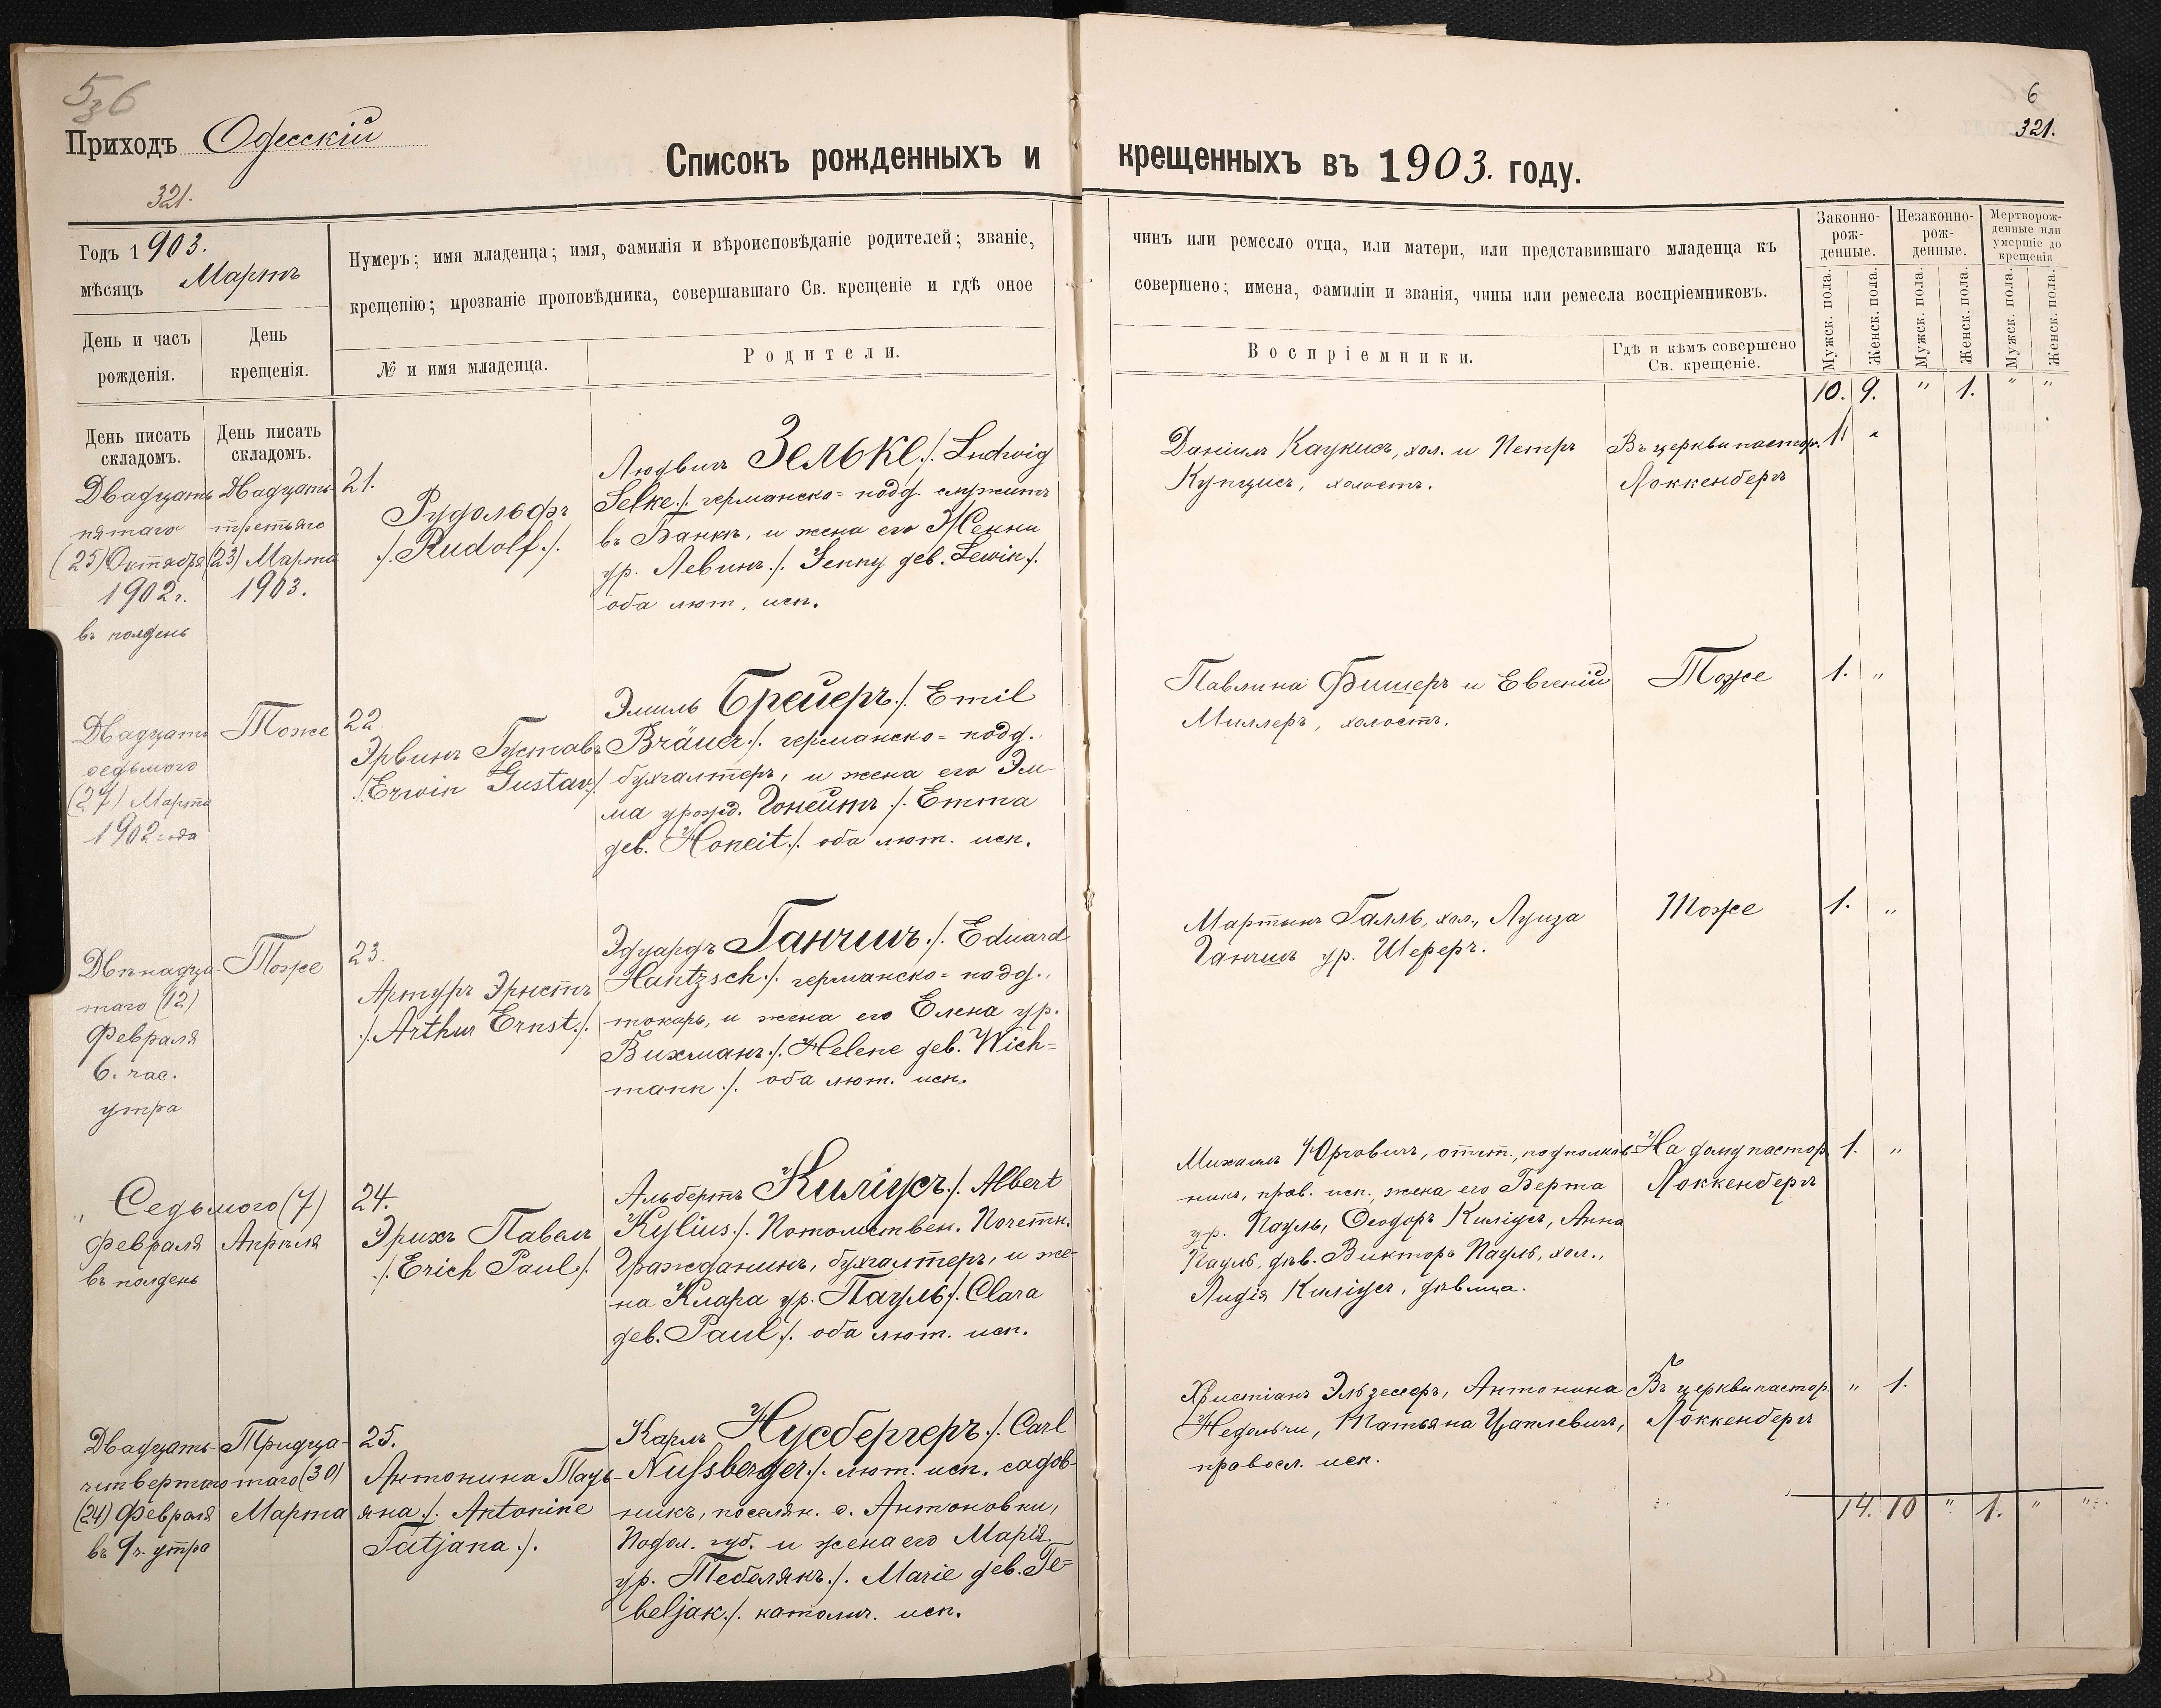 536
Приходъ Одесскій
321.
Списокъ рожденныхъ и
Годъ 1903.
мѣсяцъ Мартъ
Нумеръ; имя младенца; имя, фамилія и вѣроисповѣданіе родителей; званіе,
крещенію; прозваніе проповѣдника, совершавшаго Св. крещеніе и гдѣ оное
День и часъ
рожденія.
День
крещенія.
№ и имя младенца.
Родители.
День писать
складомъ.
День писать
складомъ.
Двадцать
пятаго
(25) Октября
1902 г.
въ полдень
Двадцать
третьяго
(23) Марта
1903.
21.
Рудольфъ
./. Rudolf ./.
Людвигъ Зельке ./. Ludwig
Selke ./. германско= подд. служитъ
въ Банкѣ, и жена его Женни
ур. Левинъ ./. Jenny geb. Lewin ./.
оба лют. исп.
Двадцать
седьмого
(27) Марта
1902 года
Тоже
22.
Эрвинъ Густавъ
./. Erwin Gustav ./.
Эмиль Брейеръ ./. Emil
Bräuer ./. германско= подд.
бухгалтеръ, и жена его Эм-
ма урожд. Гонейтъ ./. Emma
geb. Honeit ./. оба лют. исп.
Двѣнадца-
таго (12)
Февраля
6. час.
утра
Тоже
23.
Артуръ Эрнстъ
./. Arthur Ernst ./.
Эдуардъ Ганчшъ ./. Eduard
Hantzsch ./. германско= подд.,
токарь, и жена его Елена ур.
Вихманъ ./. Helene geb. Wich=
mann ./. оба лют. исп.
Седьмого (7)
Февраля
въ полдень
Апрѣля
24.
Эрихъ Павелъ
./. Erich Paul ./.
Альбертъ Киліусъ ./. Albert
Kylius ./. Потомствен. Почетн.
Гражданинъ, бухгалтеръ, и же-
на Клара ур. Пауль ./. Clara
geb. Paul ./. оба лют. исп.
Двадцать-
четвертаго
(24) Февраля
въ 9 ч. утра
Тридца-
таго (30)
Марта
25.
Антонина Тать-
яна ./. Antonine
Tatjana ./.
Карлъ Нусбергеръ ./. Carl
Nussberger ./. лют. исп. садов-
никъ, поселян. с. Антоновки,
Подол. губ. и жена его Марія
ур. Тебелякъ ./. Marie geb. Te=
beljak ./. католич. исп.
6
321.
крещенныхъ въ 1903. году.
чинъ или ремесло отца, или матери, или представившаго младенца къ
совершено; имена, фамиліи и званія, чины или ремесла воспріемниковъ.
Воспріемники.
Гдѣ и кѣмъ совершено
Св. крещеніе.
Законно-
рож-
денные.
Незаконно-
рож-
денные.
Мертворож-
денные или
умершіе до
крещенія
Мужск. пола.
Женск. пола.
Мужск. пола.
Женск. пола.
Мужск. пола.
Женск. пола.
10. 9. " 1. " "
Даніилъ Каукисъ, хол. и Петръ
Купцисъ, холостъ.
Въ церкви пастор.
Локкенбергъ
1. "
Павлина Фишеръ и Евгеній
Миллеръ, холостъ.
Тоже
1. "
Мартынъ Галль, хол., Луиза
Ганчшъ ур. Шеферъ.
Тоже
1. "
Михаилъ Юрговичъ, отст., подполков-
никъ, прав. исп., жена его Берта
ур. Пауль, Ѳеодоръ Киліусъ, Анна
Пауль, дѣв. Викторъ Пауль, хол.,
Лидія Киліусъ, дѣвица.
На дому пастор.
Локкенбергъ
1. "
Христіанъ Эльзессеръ, Антонина
Недельчи, Татьяна Цаплевичъ,
правосл. исп.
Въ церкви пастор.
Локкенбергъ
" 1.
14. 10 " 1. " "